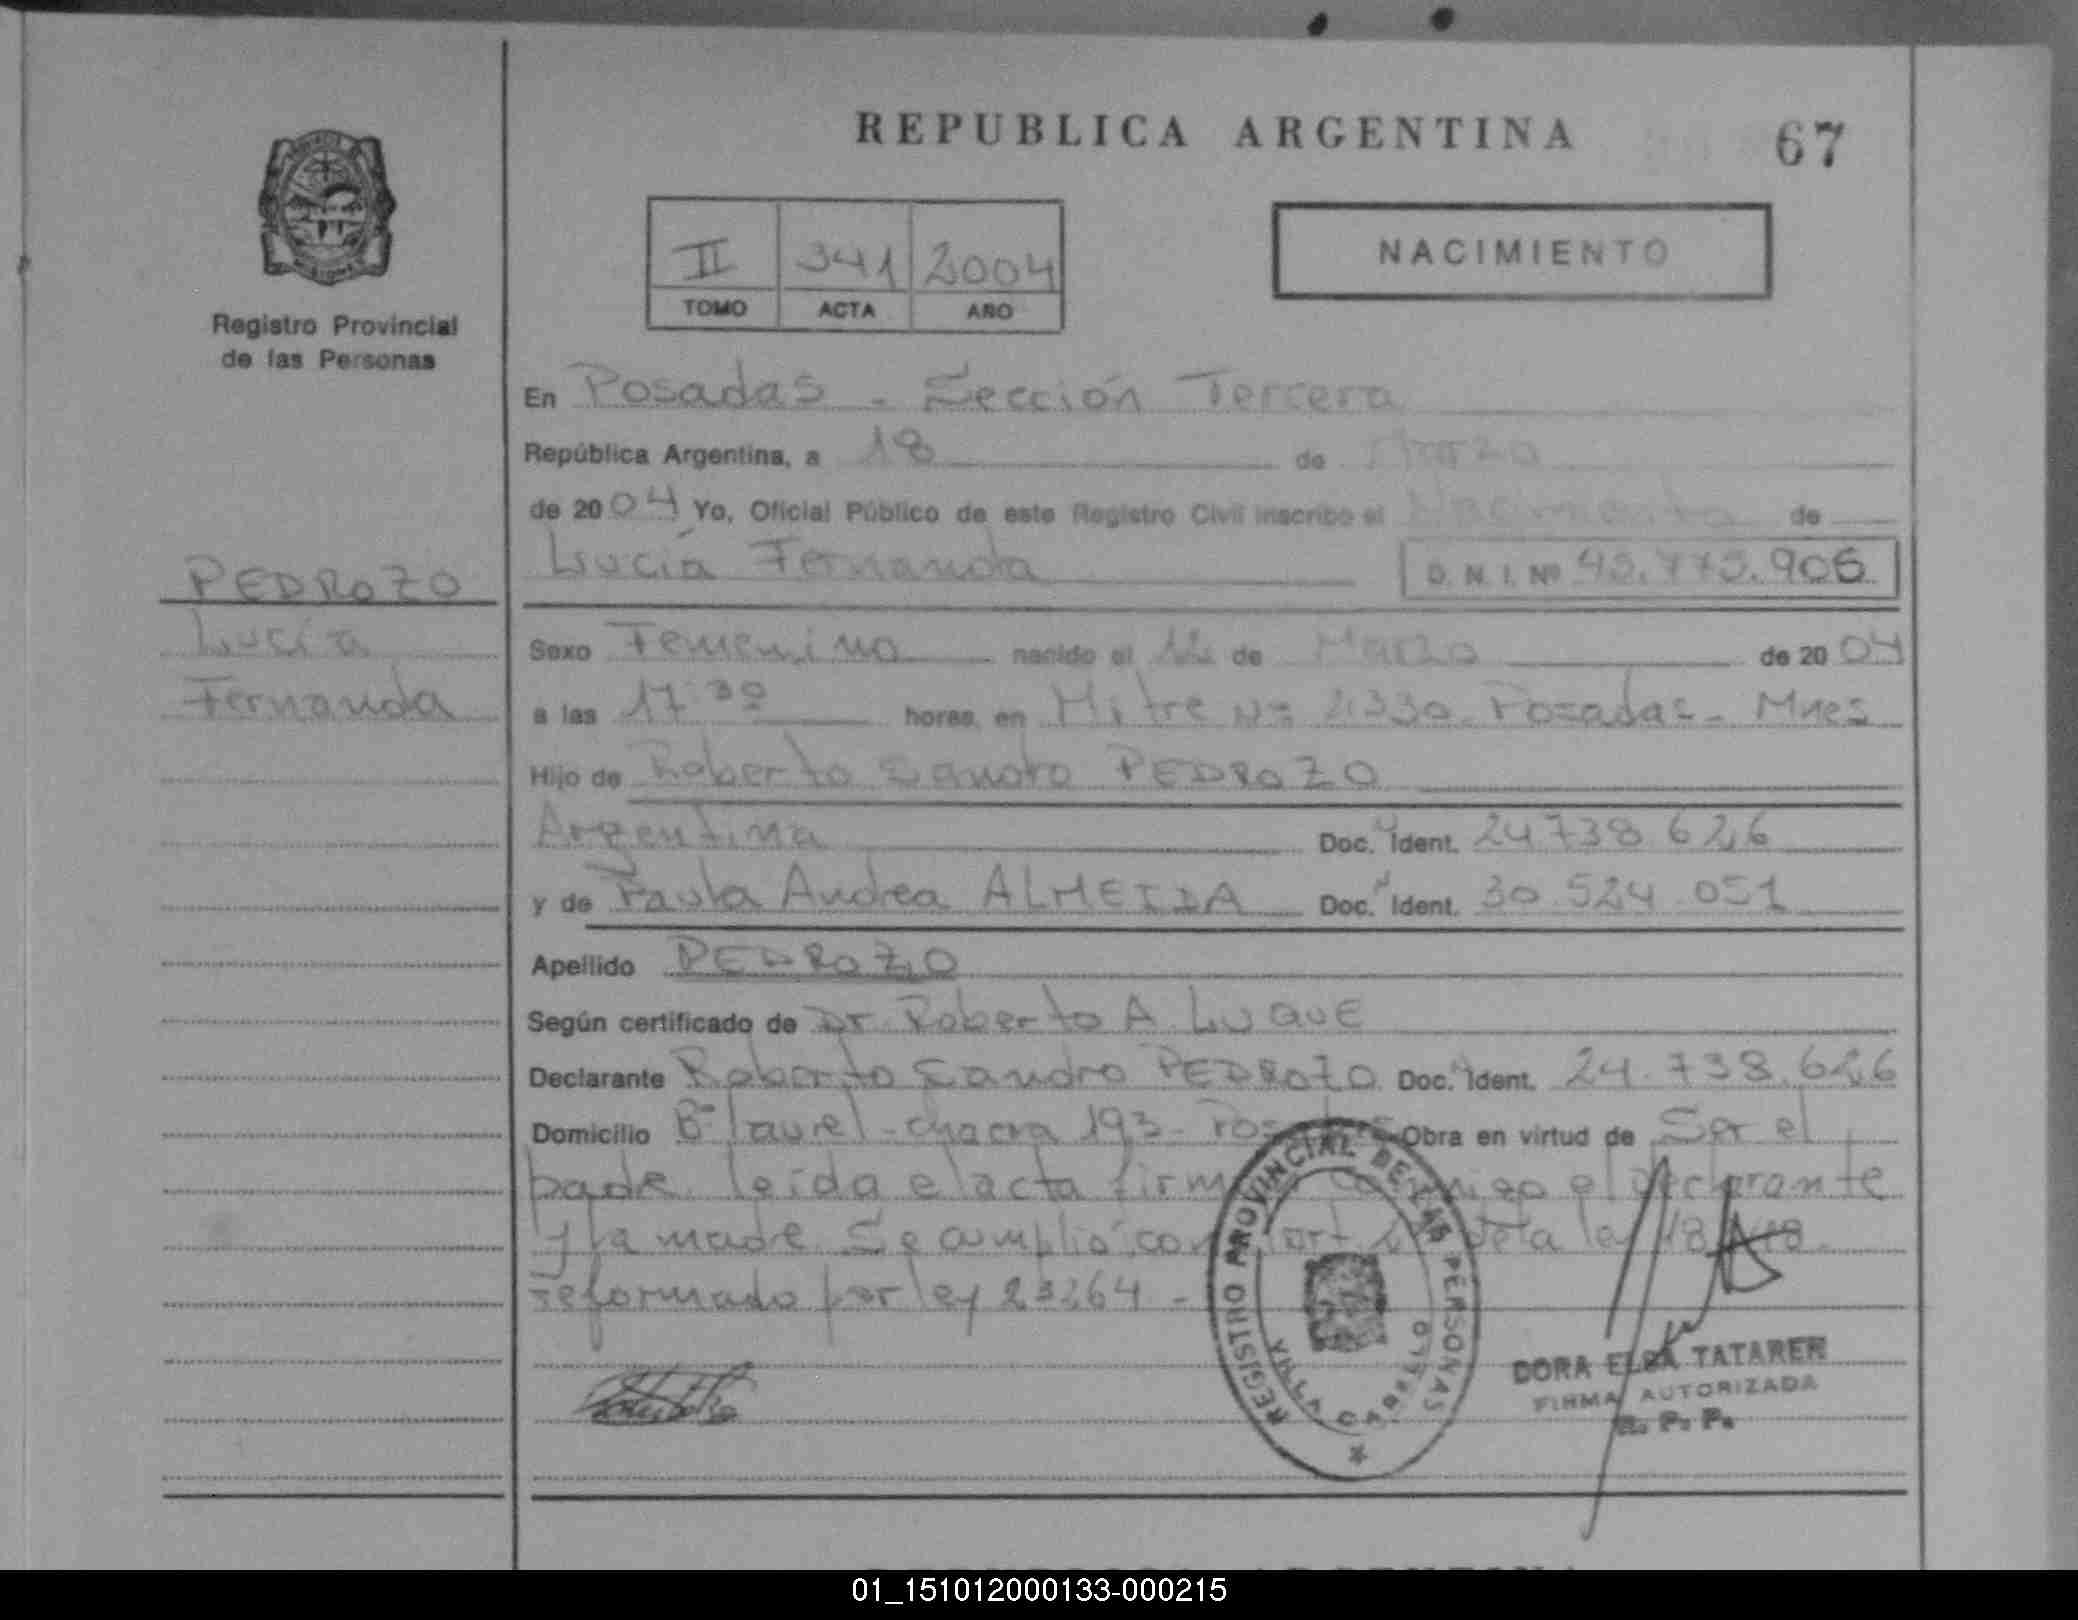 REPUBLICA ARGENTINA
67
II 341 2004
TOMO ACTA AÑO
NACIMIENTO
Registro Provincial
de las Personas
En Posadas - Sección Tercera
República Argentina, a 18 de Marzo
de 2004 Yo, Oficial Público de este Registro Civil inscribo el Nacimiento de
Lucía Fernanda D. N. I. Nº 45.775.906
PEDROZO
Lucía
Fernanda
Sexo Femenino nacido el 12 de Marzo de 2004
a las 17:30 horas, en Mitre Nº 2330 Posadas - Mnes
Hijo de Roberto Sandro PEDROZO
Argentina Doc. Ident. 24 738 626
y de Paula Andrea ALMEIDA Doc. Ident. 30.524.051
Apellido PEDROZO
Según certificado de Dr. Roberto A. LUQUE
Declarante Roberto Sandro PEDROZO Doc. Ident. 24.738.626
Domicilio Bº laurel - chacra 193 - Posadas Obra en virtud de Ser el
padre. leída el acta firma conmigo el declarante
y la madre. Se cumplió con art de la ley 18
reformado por ley 23264 -
REGISTRO PROVINCIAL DE LAS PERSONAS
VILLA CABELLO
DORA ELBA TATAREN
FIRMA AUTORIZADA
R. P. P.
01_151012000133-000215